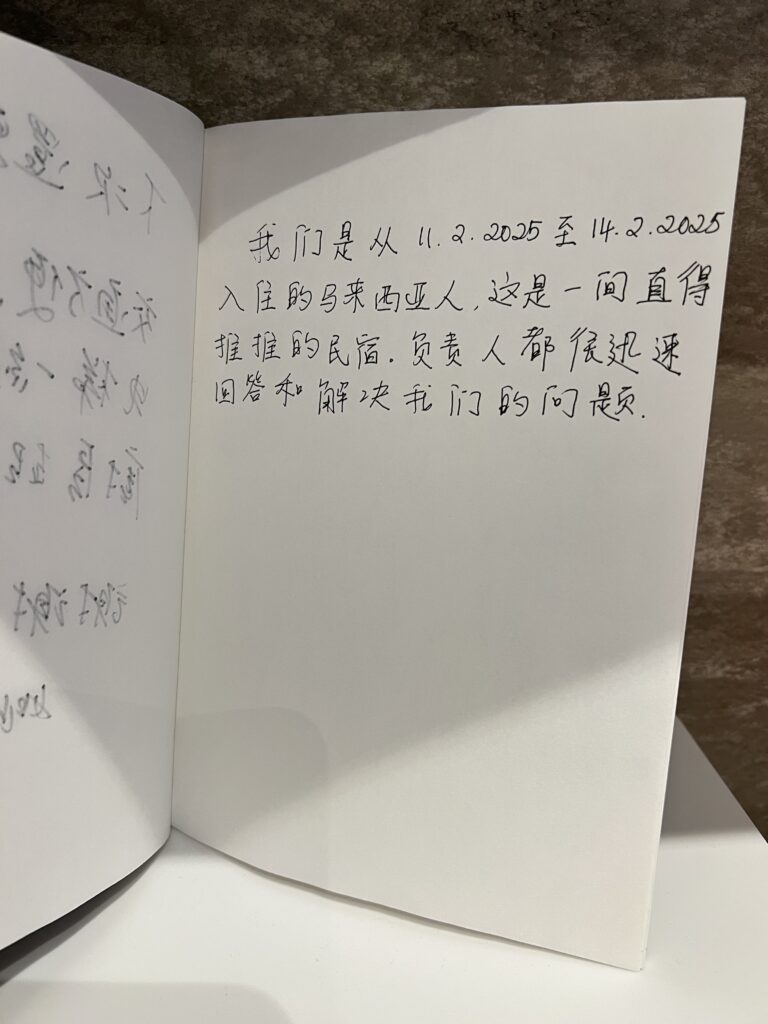 我们是从 11.2.2025 至 14.2.2025
入住的马来西亚人,这是一间直得
推推的民宿.负责人都很迅速
回答和解决我们的问题.